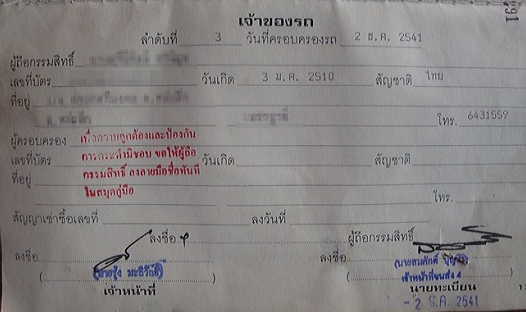 เจ้าของรถ
ลำดับที่ 3 วันที่ครอบครองรถ 2 ธ.ค. 2541
ผู้ถือกรรมสิทธิ์
เลขที่บัตร วันเกิด 3 ม.ค. 2510 สัญชาติ ไทย
ที่อยู่
โทร. 6431559
ผู้ครอบครอง เพื่อความถูกต้องและป้องกัน
เลขที่บัตร การกระทำมิชอบ ขอให้ผู้ถือ วันเกิด สัญชาติ
ที่อยู่ กรรมสิทธิ์ ลงลายมือชื่อทันที
ในสมุดคู่มือ โทร.
สัญญาเช่าซื้อเลขที่ ลงวันที่
ลงชื่อ ผู้ถือกรรมสิทธิ์
ลงชื่อ ลงชื่อ
(นายสมศักดิ์
เจ้าหน้าที่ขนส่ง 4
เจ้าหน้าที่ นายทะเบียน
- 2 ธ.ค. 2541